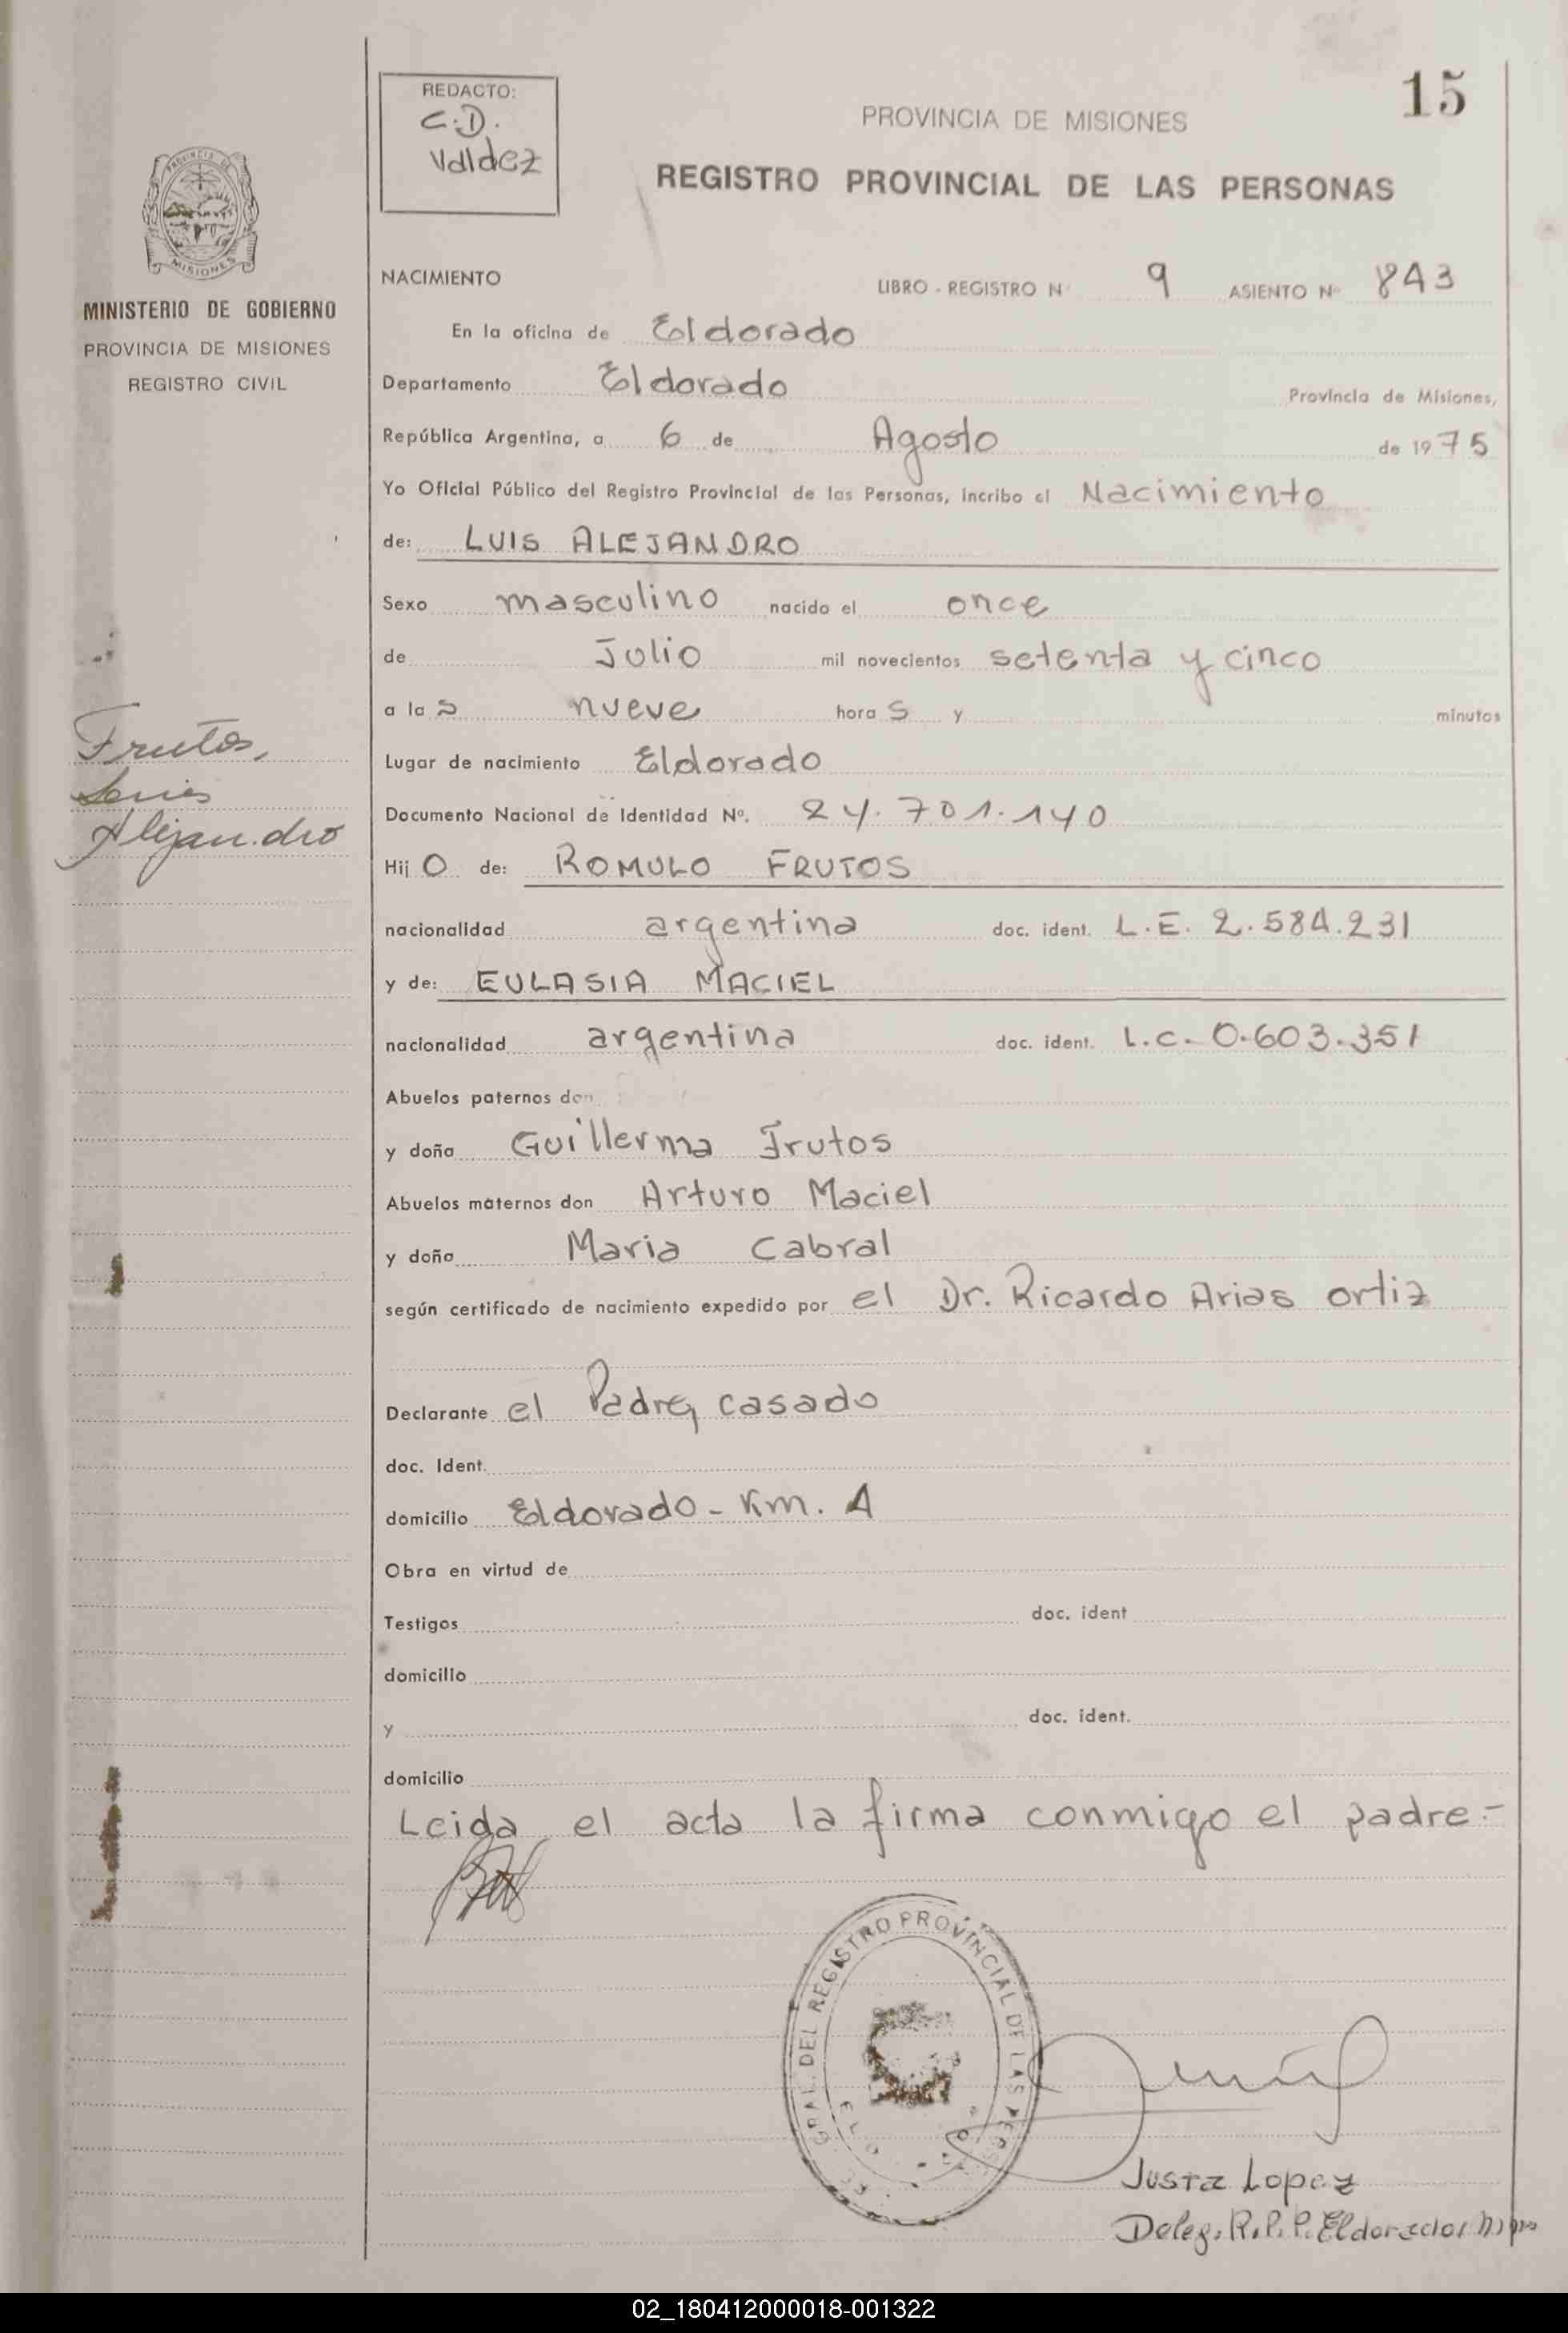 REDACTO:
C.D.
Valdez
PROVINCIA DE MISIONES
15
REGISTRO PROVINCIAL DE LAS PERSONAS
PROVINCIA DE
MISIONES
MINISTERIO DE GOBIERNO
PROVINCIA DE MISIONES
REGISTRO CIVIL
NACIMIENTO LIBRO - REGISTRO Nº 9 ASIENTO Nº 843
En la oficina de Eldorado
Departamento Eldorado Provincia de Misiones,
República Argentina, a 6 de Agosto de 1975
Yo Oficial Público del Registro Provincial de las Personas, incribo el Nacimiento
de: LUIS ALEJANDRO
Sexo masculino nacido el once
de Julio mil novecientos setenta y cinco
a las nueve horas y minutos
Frutos,
Luis
Alejandro
Lugar de nacimiento Eldorado
Documento Nacional de Identidad Nº. 24.701.140
Hijo de: ROMULO FRUTOS
nacionalidad argentina doc. ident. L.E. 2.584.231
y de: EULASIA MACIEL
nacionalidad argentina doc. ident. L.C. 0.603.351
Abuelos paternos don
y doña Guillerma Frutos
Abuelos maternos don Arturo Maciel
y doña Maria Cabral
según certificado de nacimiento expedido por el Dr. Ricardo Arias Ortiz
Declarante el Padre, casado
doc. Ident.
domicilio Eldorado - Km. 4
Obra en virtud de
Testigos doc. ident
domicilio
y doc. ident.
domicilio
Leida el acta la firma conmigo el padre.-
GRAL. DEL REGISTRO PROVINCIAL DE LAS PERS
Justa Lopez
Deleg. R.P.P. Eldorado
02_180412000018-001322